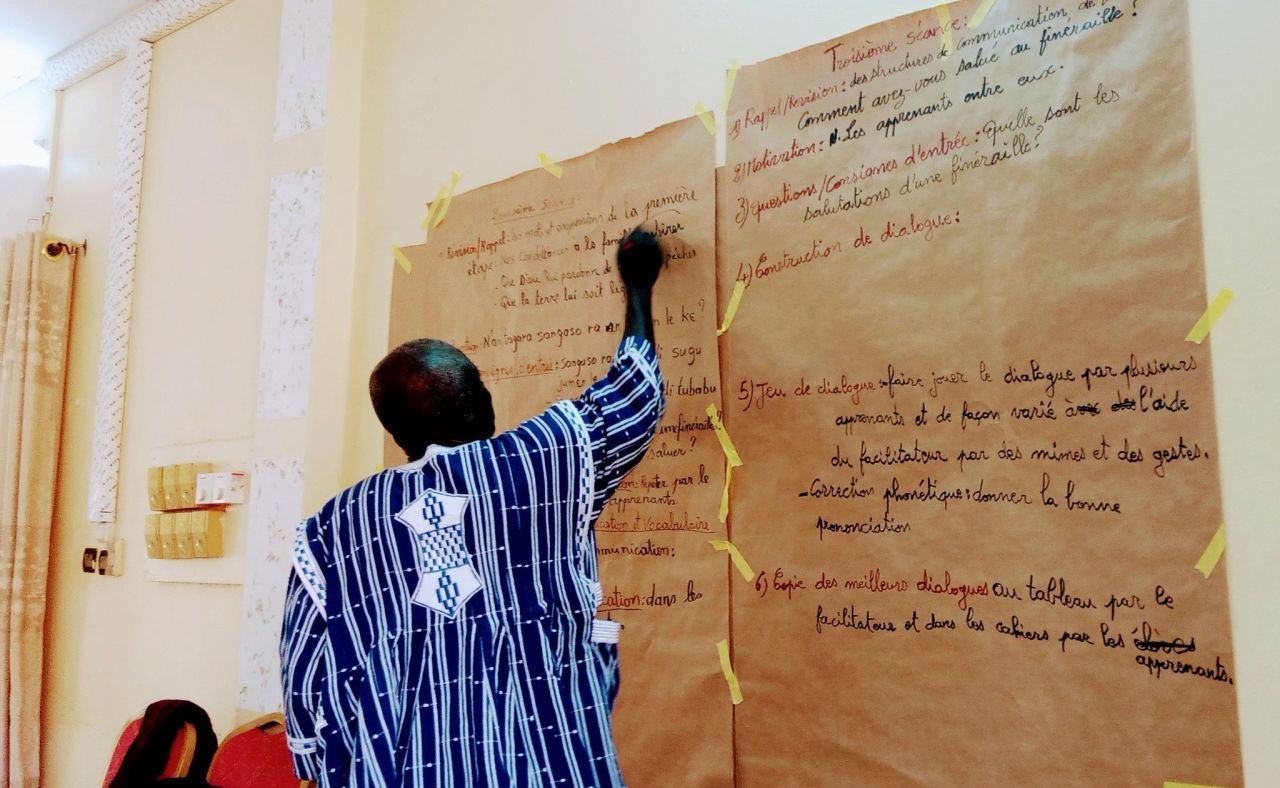 Deuxième séance:
1) Révision/Rappel: les mots et expressions de la première
étape: Mes Condoléances à la famille
- Que Dieu lui pardonne de péchés
- Que la terre lui soit
N'an tagara sangaso ra le kɛ?
d'entrée: Sangaso di sugu
jumɛn di tubabu
saluer?
Répéter par le
apprenants.
et Vocabulaire
dans les
Troisième séance:
1) Rappel/Révision: des structures de communication de
Comment avez-vous salué au finéraille?
2) Motivation: N. Les apprenants entre eux.
3) Questions/Consignes d'entrée: Quelle sont les
salutations d'une finéraille?
4) Construction de dialogue:
5) Jeu de dialogue: faire jouer le dialogue par plusieurs
apprenants et de façon varié à l'aide
du facilitateur par des mimes et des gestes.
- Correction phonétique: donner la bonne
prononciation
6) Copie des meilleurs dialogues au tableau par le
facilitateur et dans les cahiers par les élèves
apprenants.